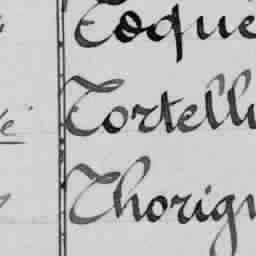 Toqué
Tortellu
Thorign